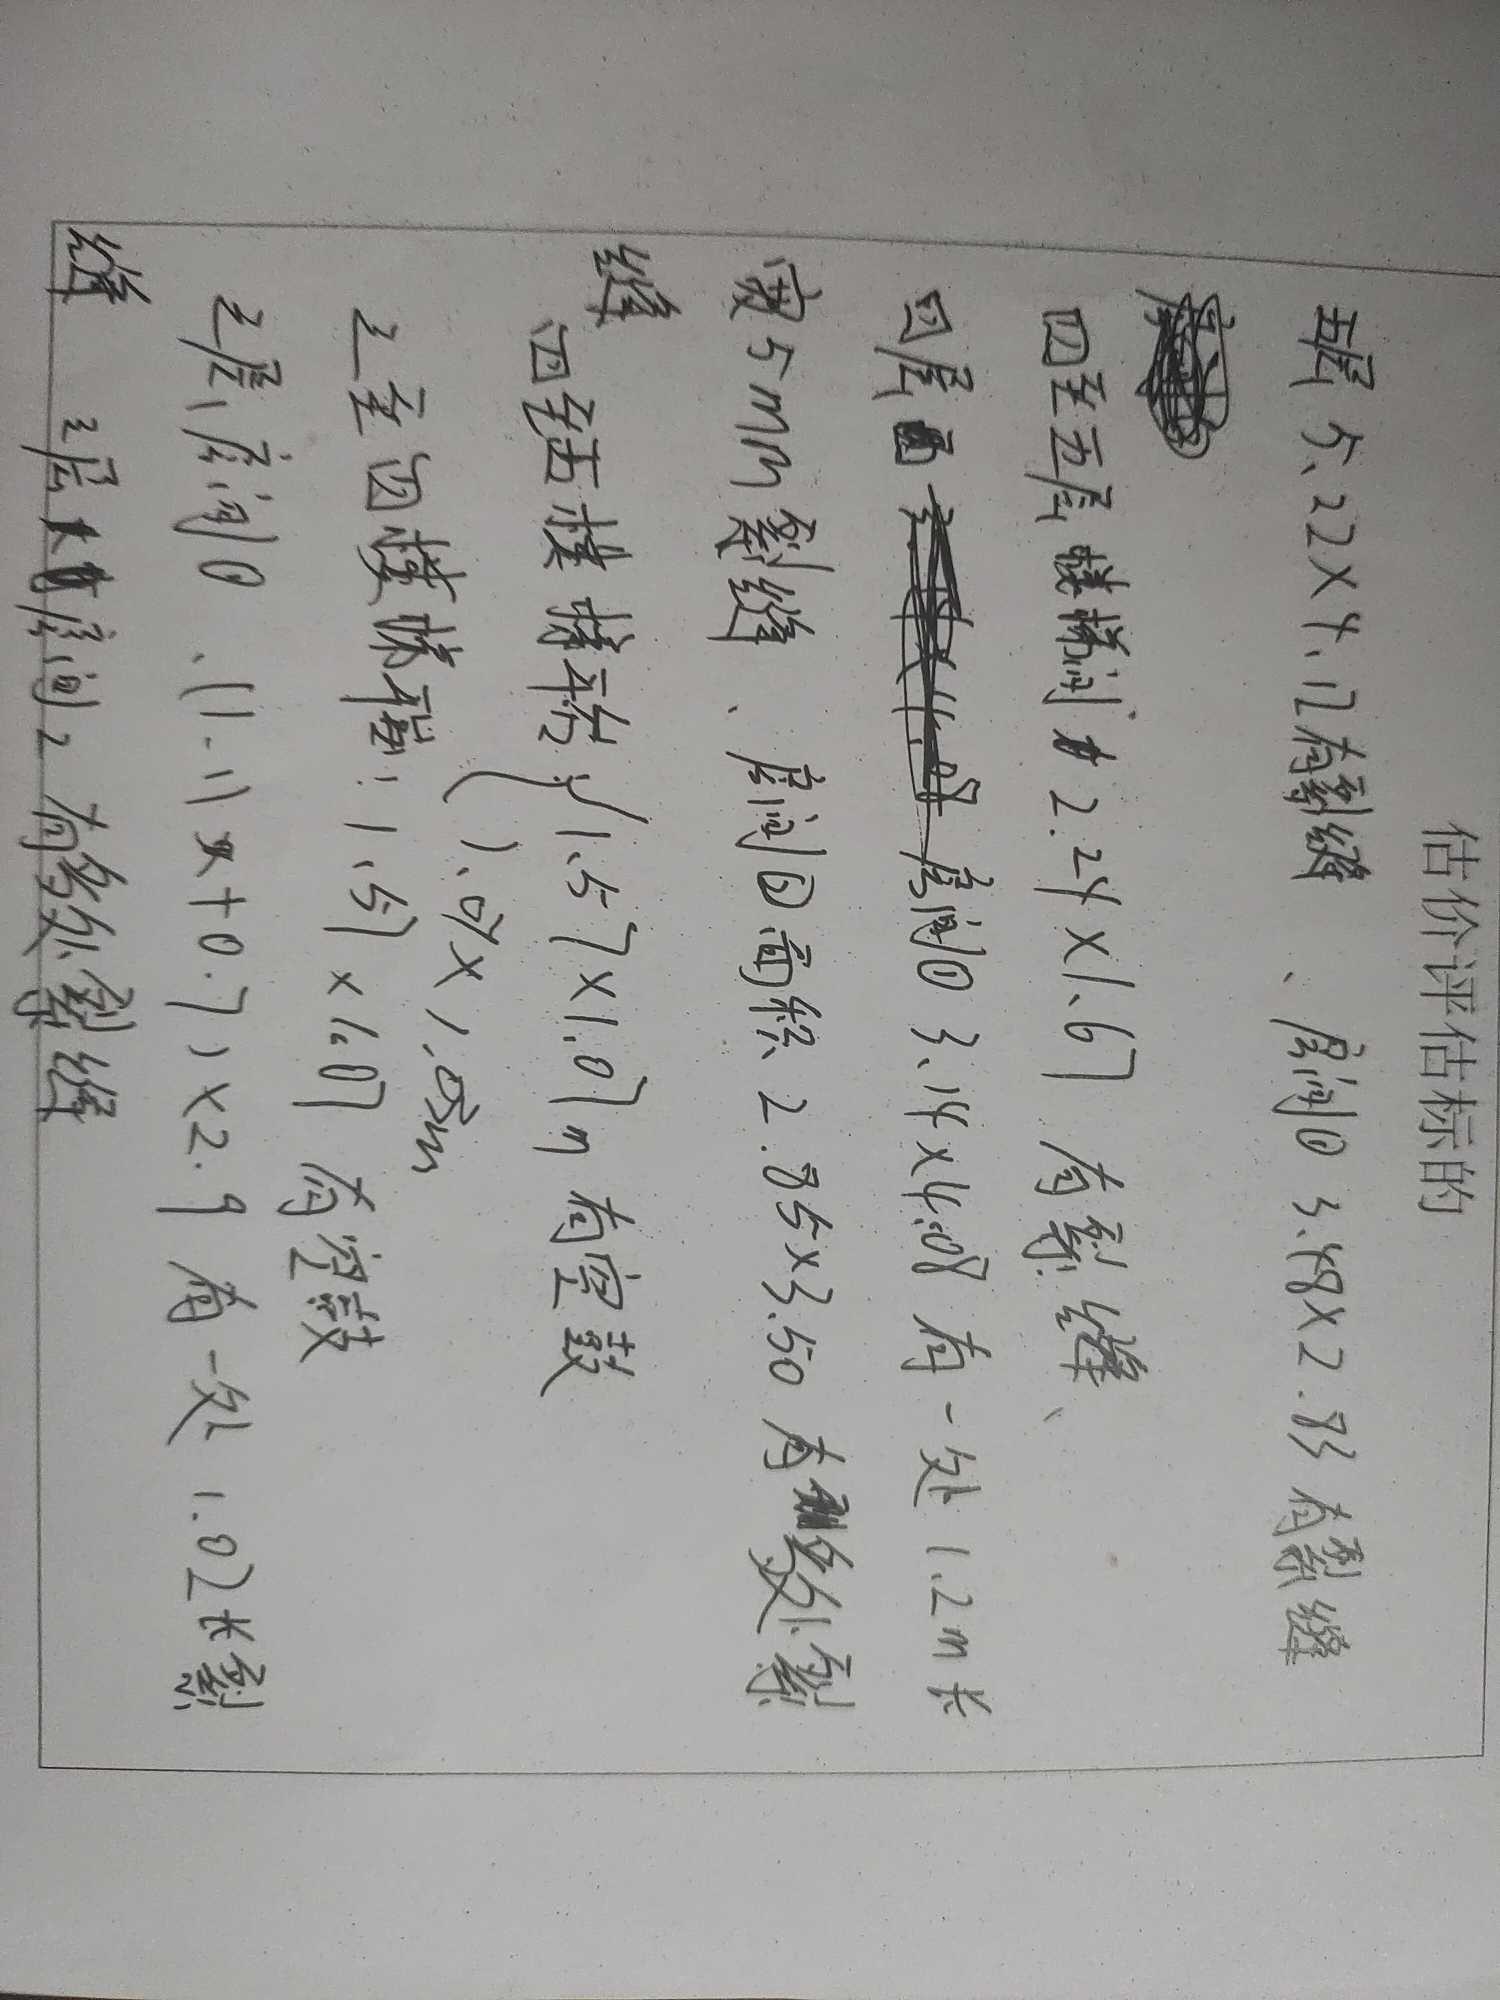 估价评估标的
五层 5.22×4.12有裂缝、房间① 3.48×2.83有裂缝
四至五层楼梯间 2.24×1.67 有裂缝、
四层 房间① 3.14×4.08 有一处1.2m长
宽5mm裂缝、房间②面积2.85×3.50 有多处裂
缝
四至五楼梯平台 1.57×1.07m 有空鼓
1.07×1.05m
三至四楼梯平台:1.57×1.07 有空鼓
三层,房间①、(1.11+0.7)×2.9 有一处1.02长裂
缝
三层 房间2 有多处裂缝